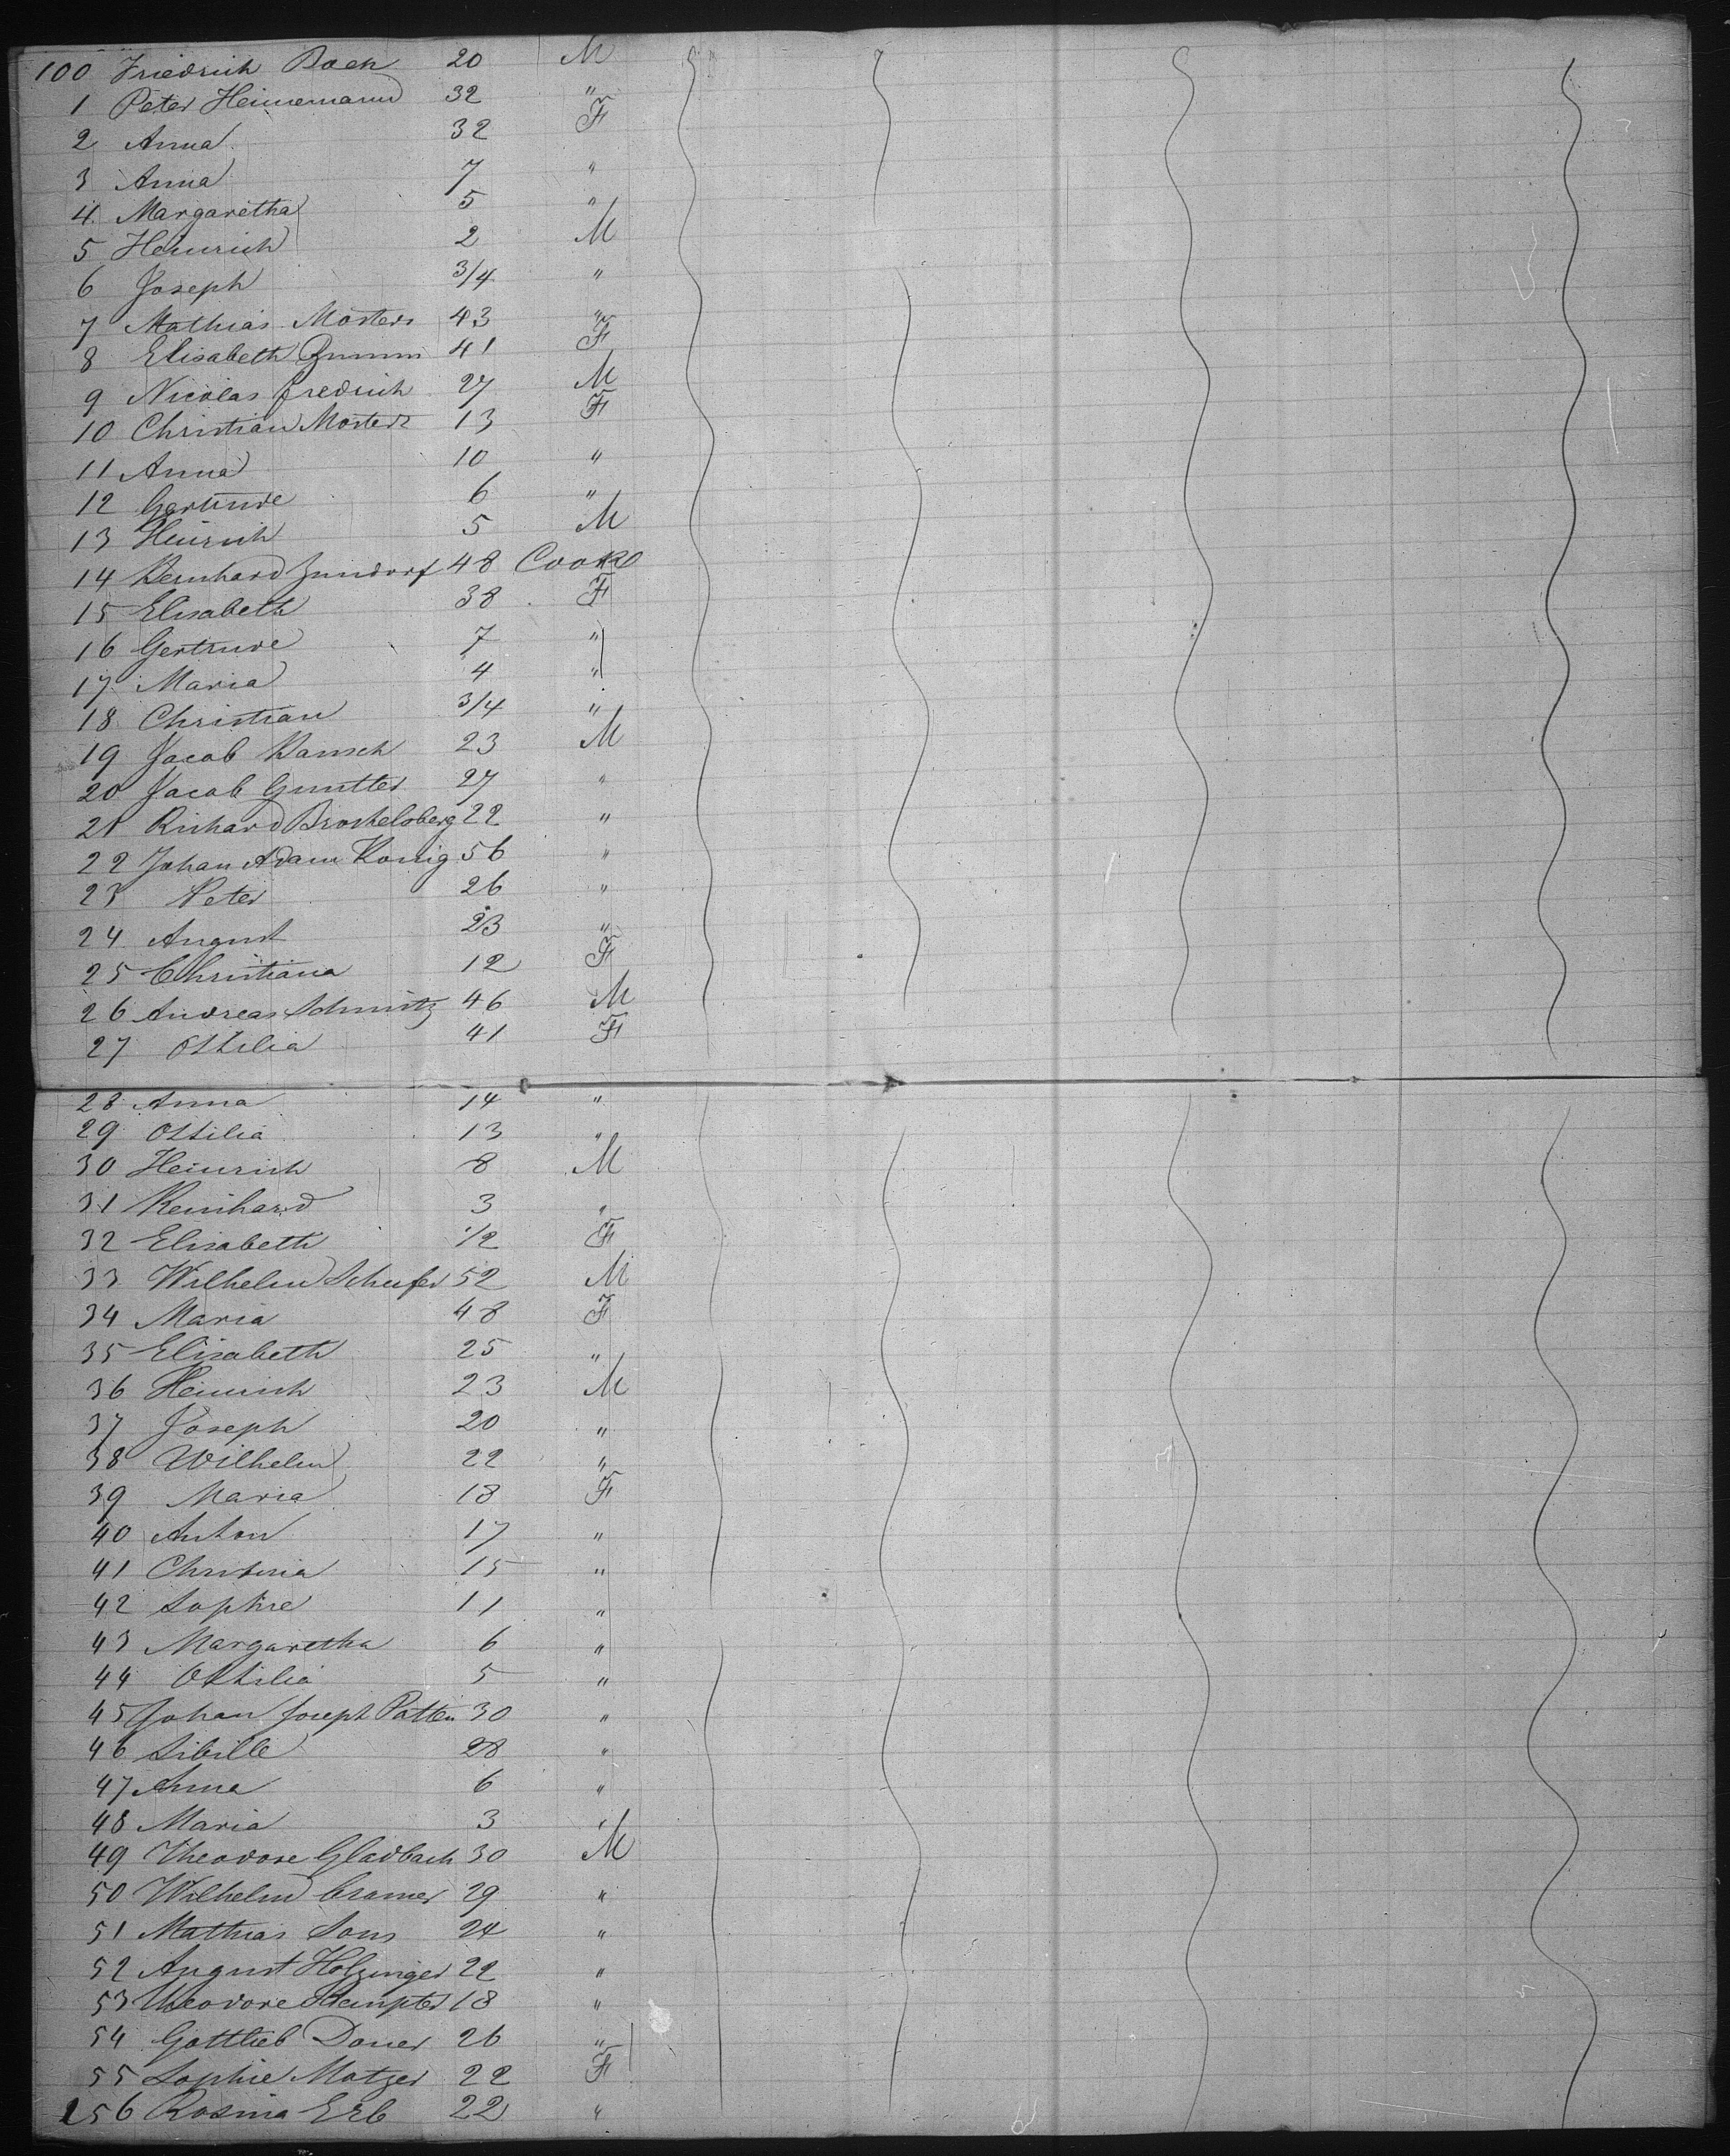 100 Friedrich Boek 20 M
1 Peter Heinemann 32 "
2 Anna 32 F
3 Anna 7 "
4 Margaretha 5 "
5 Heinrich 2 M
6 Joseph 3/4 "
7 Mathias Mosters 43 "
8 Elisabeth 41 F
9 Nicolas Fredrich 27 M
10 Christian Mosters 13 F
11 Anna 10 "
12 Gertrude 6 "
13 Heinrich 5 M
14 Bernhard Zundorf 48 Cook
15 Elisabeth 38 F
16 Gertrude 7 "
17 Maria 4 "
18 Christian 3/4 "
19 Jacob 23 M
20 Jacob Guntter 27 "
21 Richard Brochelsberg 22 "
22 Johan Adam Konig 56 "
23 Peter 26 "
24 August 23 "
25 Christiana 12 F
26 Andreas Schmitz 46 M
27 Ottilia 41 F
28 Anna 14 "
29 Ottilia 13 "
30 Heinrich 8 M
31 Reinhard 3 "
32 Elisabeth 1/2 F
33 Wilhelm Schufer 52 M
34 Maria 48 F
35 Elisabeth 25 "
36 Heinrich 23 M
37 Joseph 20 "
38 Wilhelm 22 "
39 Maria 18 F
40 Anton 17 "
41 Christina 15 "
42 Sophie 11 "
43 Margaretha 6 "
44 Ottilia 5 "
45 Johan Joseph Patten 30 "
46 Sibille 28 "
47 Anna 6 "
48 Maria 3 "
49 Theodore Gladbach 30 M
50 Wilhelm Cramer 29 "
51 Mathias Sons 24 "
52 August Holzinger 22 "
53 Theodore Kempter 18 "
54 Gottlieb Doner 26 "
55 Sophie Motzer 22 F
156 Rosina Erb 22 "